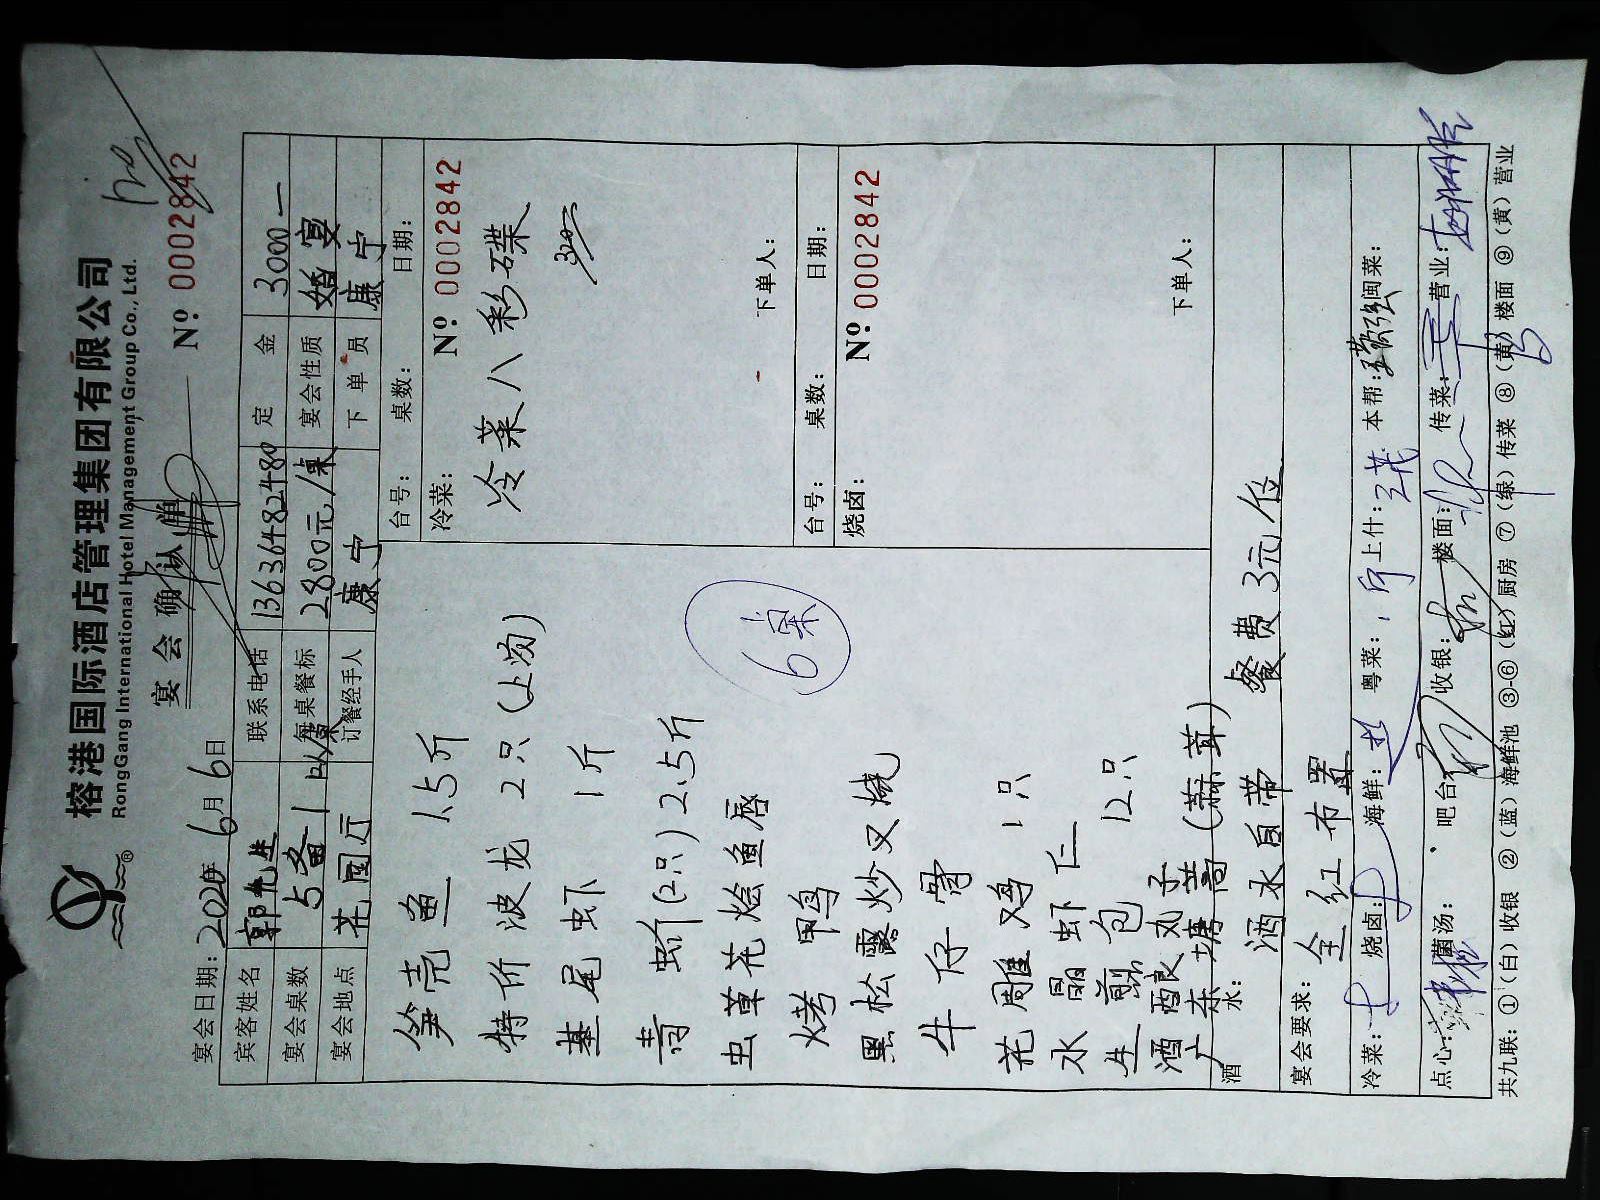 榕港国际酒店管理集团有限公司
RongGang International Hotel Management Group Co., Ltd.
宴会确认单
宴会日期: 2020年 6月 6日
Nº 0002842
宾客姓名 郭先生 联系电话 13636482480 定金 3000—
宴会桌数 5备1 每桌餐标 2800元/桌 宴会性质 婚宴
宴会地点 花园厅 订餐经手人 康宁 下单员 康宁
笋壳鱼 1.5斤
特价波龙 2只(上汤)
基尾虾 1斤
青蚧(2只)2.5斤
虫草花烩鱼唇
烤鸭
黑松露炒叉烧
牛仔骨
花雕鸡 1只
水晶虾仁
生煎包 12只
酒酿丸子
广东塘蒿(蒜茸)
6桌
台号: 桌数: 日期:
冷菜: Nº 0002842
冷菜八彩碟
320
下单人:
台号: 桌数: 日期:
烧卤: Nº 0002842
下单人:
酒水: 酒水自带 餐费3元/位
宴会要求: 全红布置
冷菜: 烧卤: 海鲜: 粤菜: 上什: 本帮: 闽菜:
点心: 菌汤: 吧台: 收银: 楼面: 传菜: 营业:
共九联: ①(白)收银 ②(蓝)海鲜池 ③-⑥(红)厨房 ⑦(绿)传菜 ⑧(黄)楼面 ⑨(黄)营业